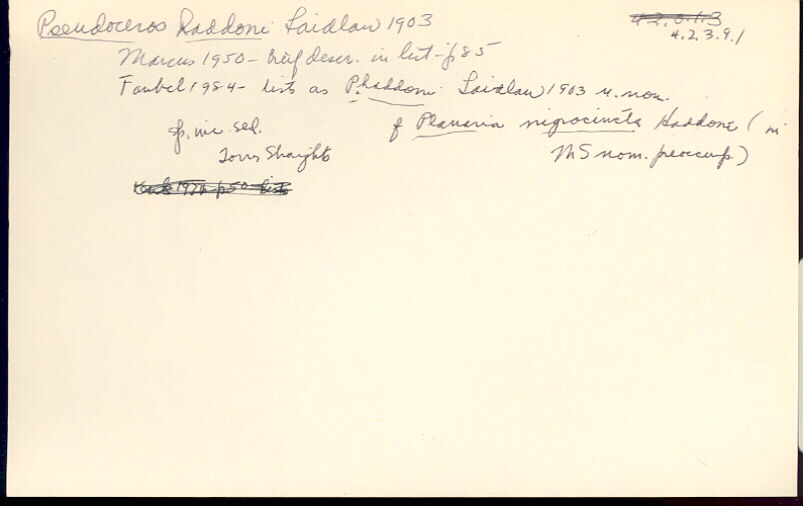 Pseudoceros haddoni Laidlaw 1903
4.2.3.9.1
Marcus 1950 - brief descr. in list - p 85
Faubel 1984 - lists as P. haddoni Laidlaw 1903 n. nom.
sp. inc. sed. f Planaria nigrocincta Haddoni (in
Torres Straights MS nom. preoccup)